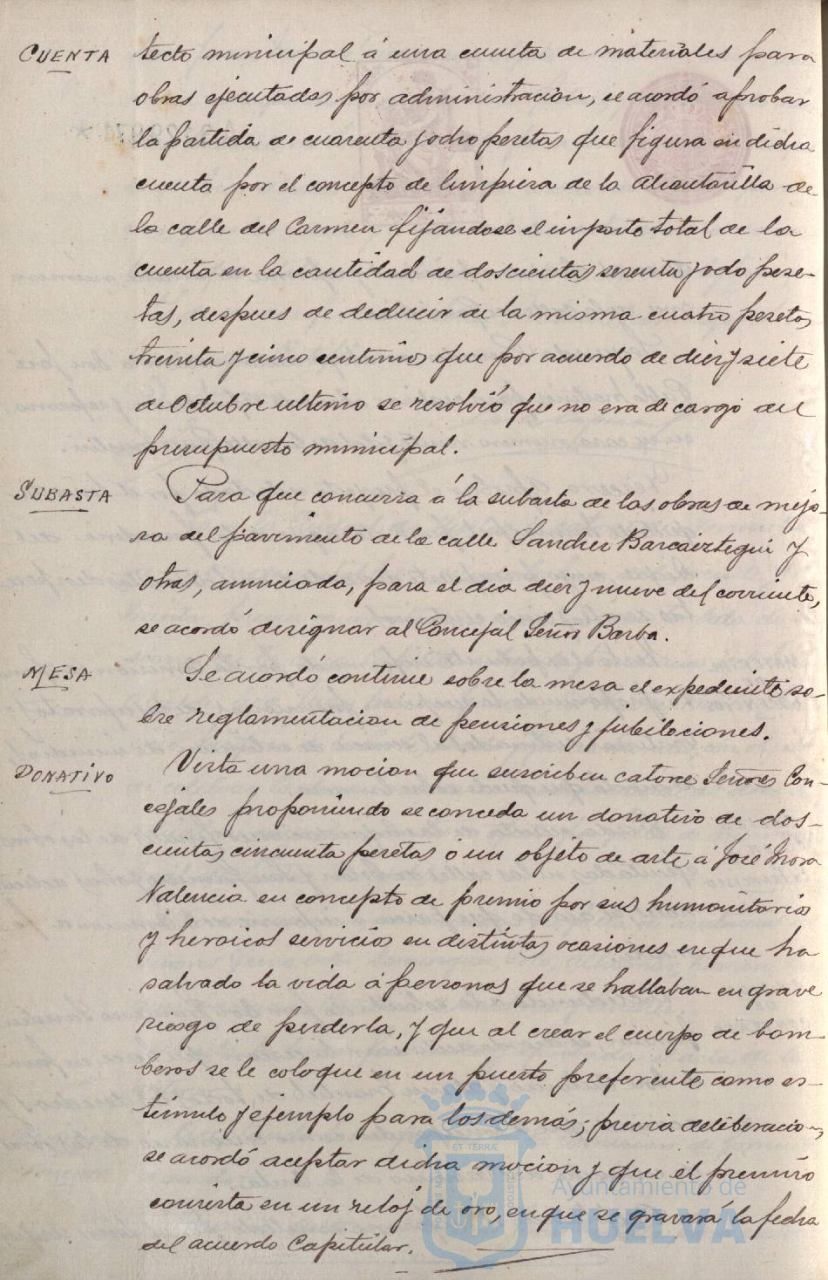 CUENTA
tecto municipal á una cuenta de materiales para
obras ejecutadas por administracion, se acordó aprobar
la partida de cuarenta y ocho pesetas que figura en dicha
cuenta por el concepto de limpieza de la Alcantarilla de
la calle del Carmen fijandose el importe total de la
cuenta en la cantidad de doscientas sesenta y ocho pese-
tas, despues de deducir de la misma cuatro pesetas
treinta y cinco centimos que por acuerdo de diez y siete
de Octubre ultimo se resolvió que no era de cargo del
presupuesto municipal.
SUBASTA
Para que concurra á la subasta de las obras de mejo-
ra del pavimento de la calle Sanchez Barcaiztegui y
otras, anunciada, para el dia diez y nueve del corriente,
se acordó designar al Concejal Señor Barba.
MESA
Se acordó continue sobre la mesa el expediente so-
bre reglamentacion de pensiones y jubilaciones.
DONATIVO
Vista una mocion que suscriben catorce Señores Con-
cejales proponiendo se conceda un donativo de dos-
cientas cincuenta pesetas ó un objeto de arte á José Mora
Valencia en concepto de premio por sus humanitarios
y heroicos servicios en distintas ocasiones en que ha
salvado la vida á personas que se hallaban en grave
riesgo de perderla, y que al crear el cuerpo de bom-
beros se le coloque en un puesto preferente como es-
tímulo y ejemplo para los demás; previa deliberacion,
se acordó aceptar dicha mocion y que el premio
consista en un reloj de oro, en que se gravará la fecha
del acuerdo Capitular.
Ayuntamiento de
HUELVA